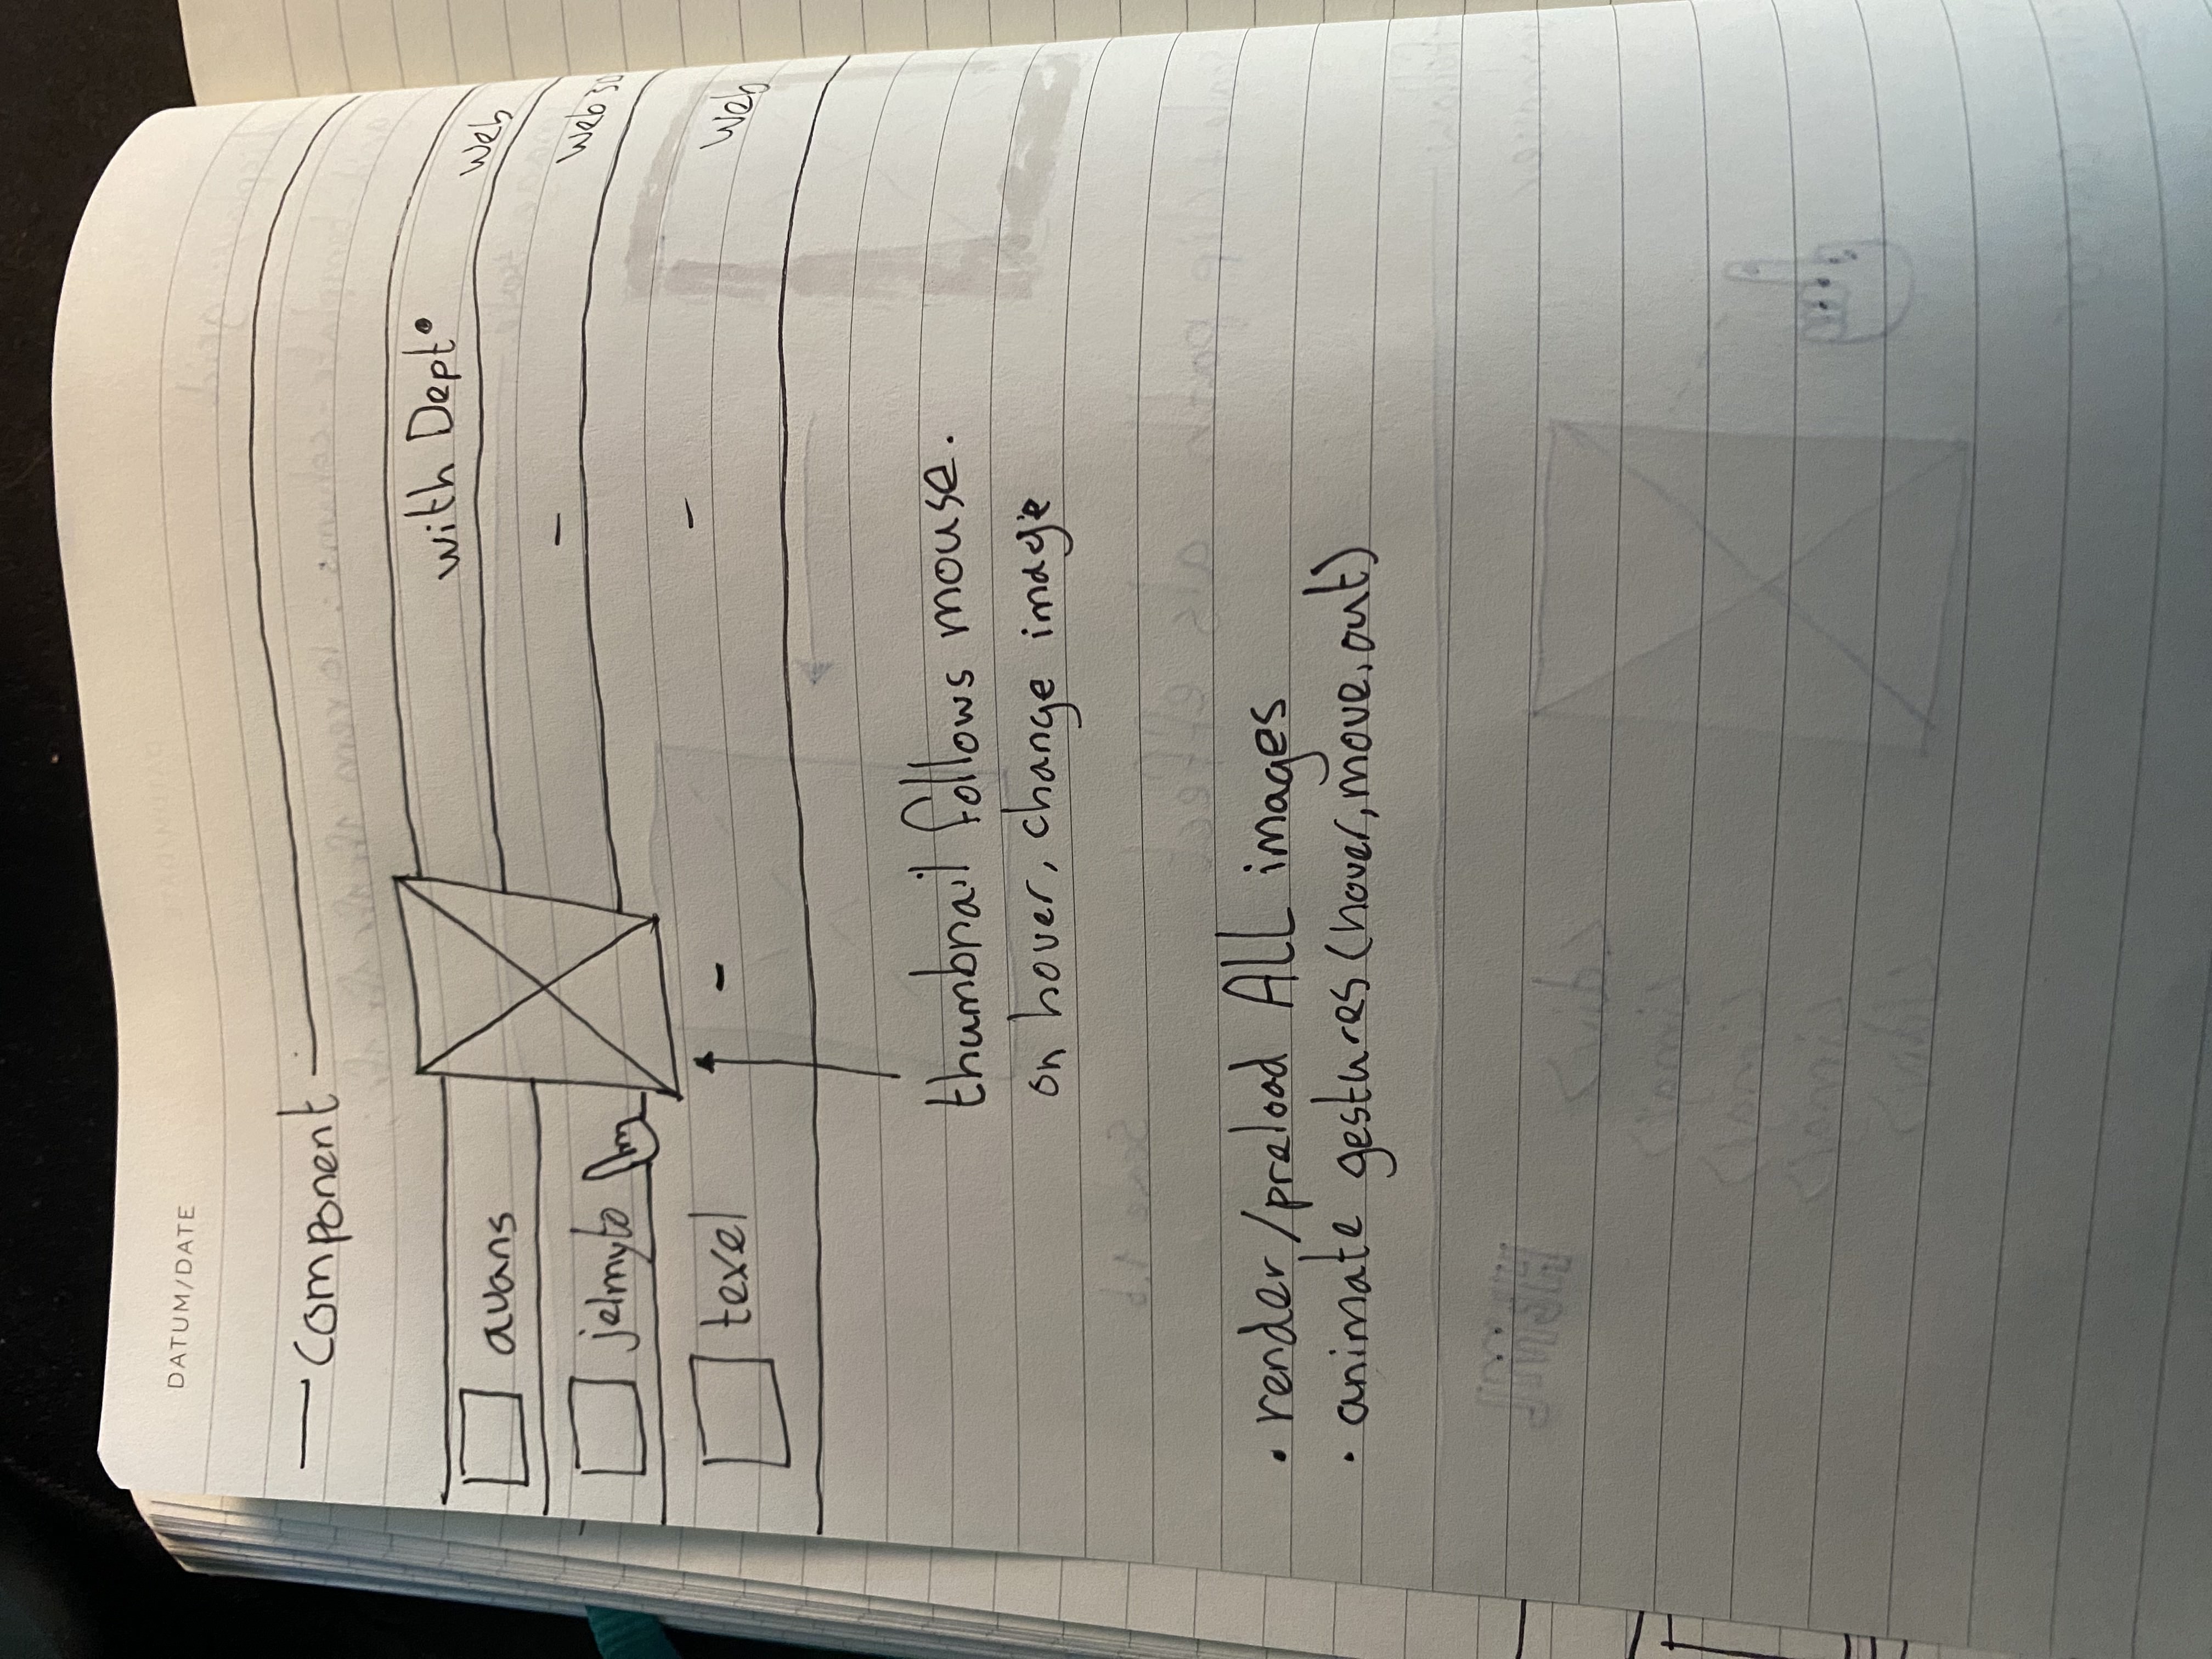 DATUM/DATE
component
avans with Dept• web
jelmyto - web 3D
texel - - web
thumbnail follows mouse.
on hover, change image
• render/preload ALL images
• animate gestures (hover, move, out)